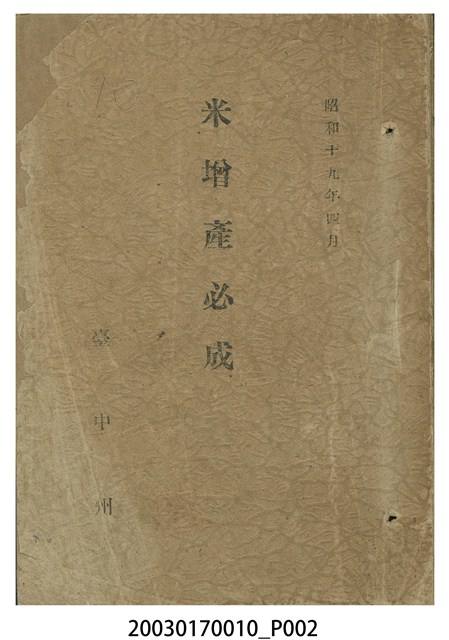 昭和十九年四月
米增產必成
臺中州
20030170010_P002